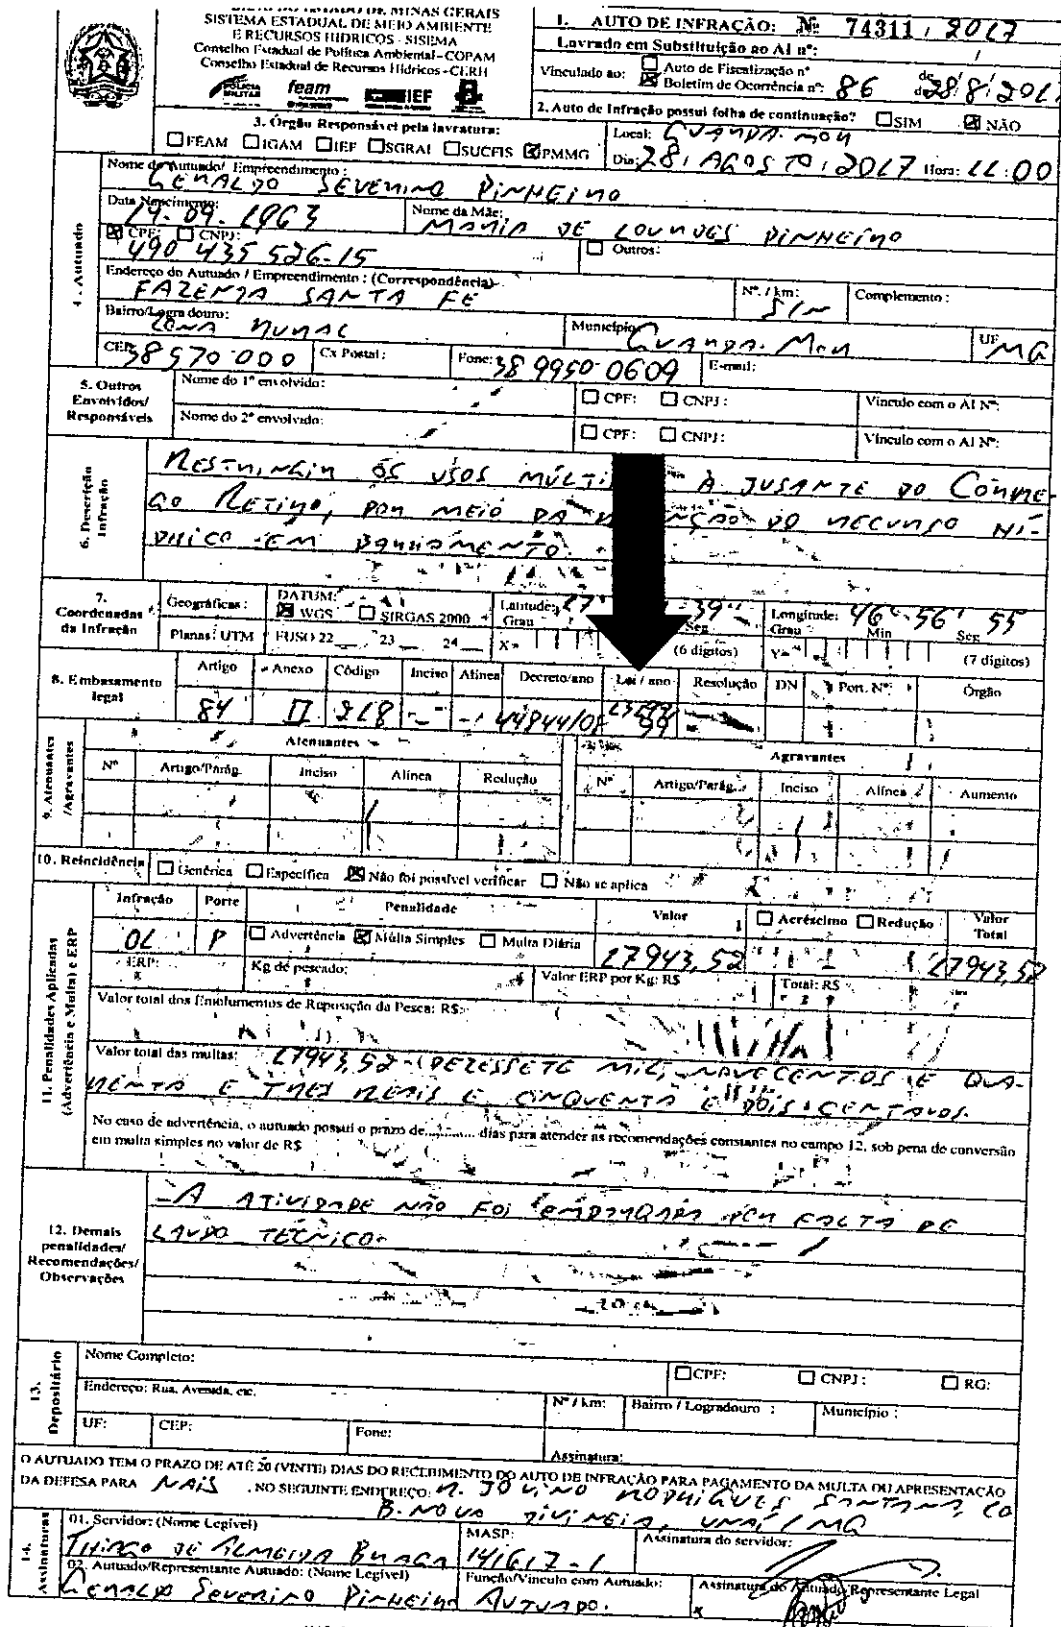 DE MINAS GERAIS
SISTEMA ESTADUAL DE MEIO AMBIENTE
E RECURSOS HIDRICOS - SISEMA
Conselho Estadual de Política Ambiental - COPAM
Conselho Estadual de Recursos Hídricos - CERH
POLÍCIA MILITAR feam IEF
1. AUTO DE INFRAÇÃO: Nº 74311 / 2017
Lavrado em Substituição ao AI nº: /
Vinculado ao: Auto de Fiscalização nº
Boletim de Ocorrência nº: 86 de 28/8/2017
2. Auto de Infração possui folha de continuação? SIM NÃO
3. Órgão Responsável pela lavratura:
FEAM IGAM IEF SGRAI SUCFIS PMMG
Local: GUARDA-MOR
Dia: 28 / AGOSTO / 2017 Hora: 11:00
4. Autuado
Nome do Autuado/ Empreendimento:
GERALDO SEVERINO PINHEIRO
Data Nascimento: 19.09.1963
Nome da Mãe: MARIA DE LOURDES PINHEIRO
CPF: CNPJ: 490 435 526-15
Outros:
Endereço do Autuado / Empreendimento: (Correspondência)
FAZENDA SANTA FE
Nº. / km: S/N
Complemento:
Bairro/Logradouro: ZONA RURAL
Município: GUARDA-MOR
UF MG
CEP: 38570-000
Cx Postal:
Fone: 38 9950-0609
E-mail:
5. Outros Envolvidos/ Responsáveis
Nome do 1º envolvido:
CPF: CNPJ:
Vínculo com o AI Nº:
Nome do 2º envolvido:
CPF: CNPJ:
Vínculo com o AI Nº:
6. Descrição Infração
RESTRINGIR OS USOS MÚLTI À JUSANTE DO CÓRRE-
GO RETIRO, POR MEIO DA DO RECURSO HÍ-
DRICO EM BARRAMENTO.
7. Coordenadas da Infração
Geográficas: DATUM: WGS SIRGAS 2000
Latitude: Grau 17 Seg 39"
Longitude: Grau 46° Min 56' Seg 55
Planas: UTM FUSO 22 23 24 X= (6 dígitos) Y= (7 dígitos)
8. Embasamento legal
Artigo Anexo Código Inciso Alínea Decreto/ano Lei / ano Resolução DN Port. Nº Órgão
84 II 218 - - 44844/08 99
9. Atenuantes /Agravantes
Atenuantes Agravantes
Nº Artigo/Parág. Inciso Alínea Redução Nº Artigo/Parág. Inciso Alínea Aumento
10. Reincidência Genérica Específica Não foi possível verificar Não se aplica
11. Penalidades Aplicadas (Advertência e Multa) e ERP
Infração Porte Penalidade Valor Acréscimo Redução Valor Total
01 P Advertência Multa Simples Multa Diária 17943,52 17943,52
ERP: Kg de pescado: Valor ERP por Kg: R$ Total: R$
Valor total dos Emolumentos de Reposição da Pesca: R$:
Valor total das multas: 17943,52 (DEZESSETE MIL, NOVECENTOS E QUA-
RENTA E TRES REAIS E CINQUENTA E DOIS CENTAVOS.
No caso de advertência, o autuado possui o prazo de ........... dias para atender as recomendações constantes no campo 12, sob pena de conversão
em multa simples no valor de R$
12. Demais penalidades/ Recomendações/ Observações
- A ATIVIDADE NÃO FOI EMBARGADA POR FALTA DE
LAUDO TÉCNICO.
13. Depositário
Nome Completo:
CPF: CNPJ: RG:
Endereço: Rua, Avenida, etc.
Nº / km: Bairro / Logradouro : Município :
UF: CEP: Fone: Assinatura:
O AUTUADO TEM O PRAZO DE ATÉ 20 (VINTE) DIAS DO RECEBIMENTO DO AUTO DE INFRAÇÃO PARA PAGAMENTO DA MULTA OU APRESENTAÇÃO
DA DEFESA PARA NAIS , NO SEGUINTE ENDEREÇO: R. JOVINO RODRIGUES SANTANA, 10
B. NOVA DIVINEIA, UNAÍ / MG
14. Assinaturas
01. Servidor: (Nome Legível) MASP: Assinatura do servidor:
THIAGO DE ALMEIDA BRAGA 141617-1
02. Autuado/Representante Autuado: (Nome Legível) Função/Vínculo com Autuado: Assinatura do Autuado/Representante Legal
GERALDO SEVERINO PINHEIRO AUTUADO. x